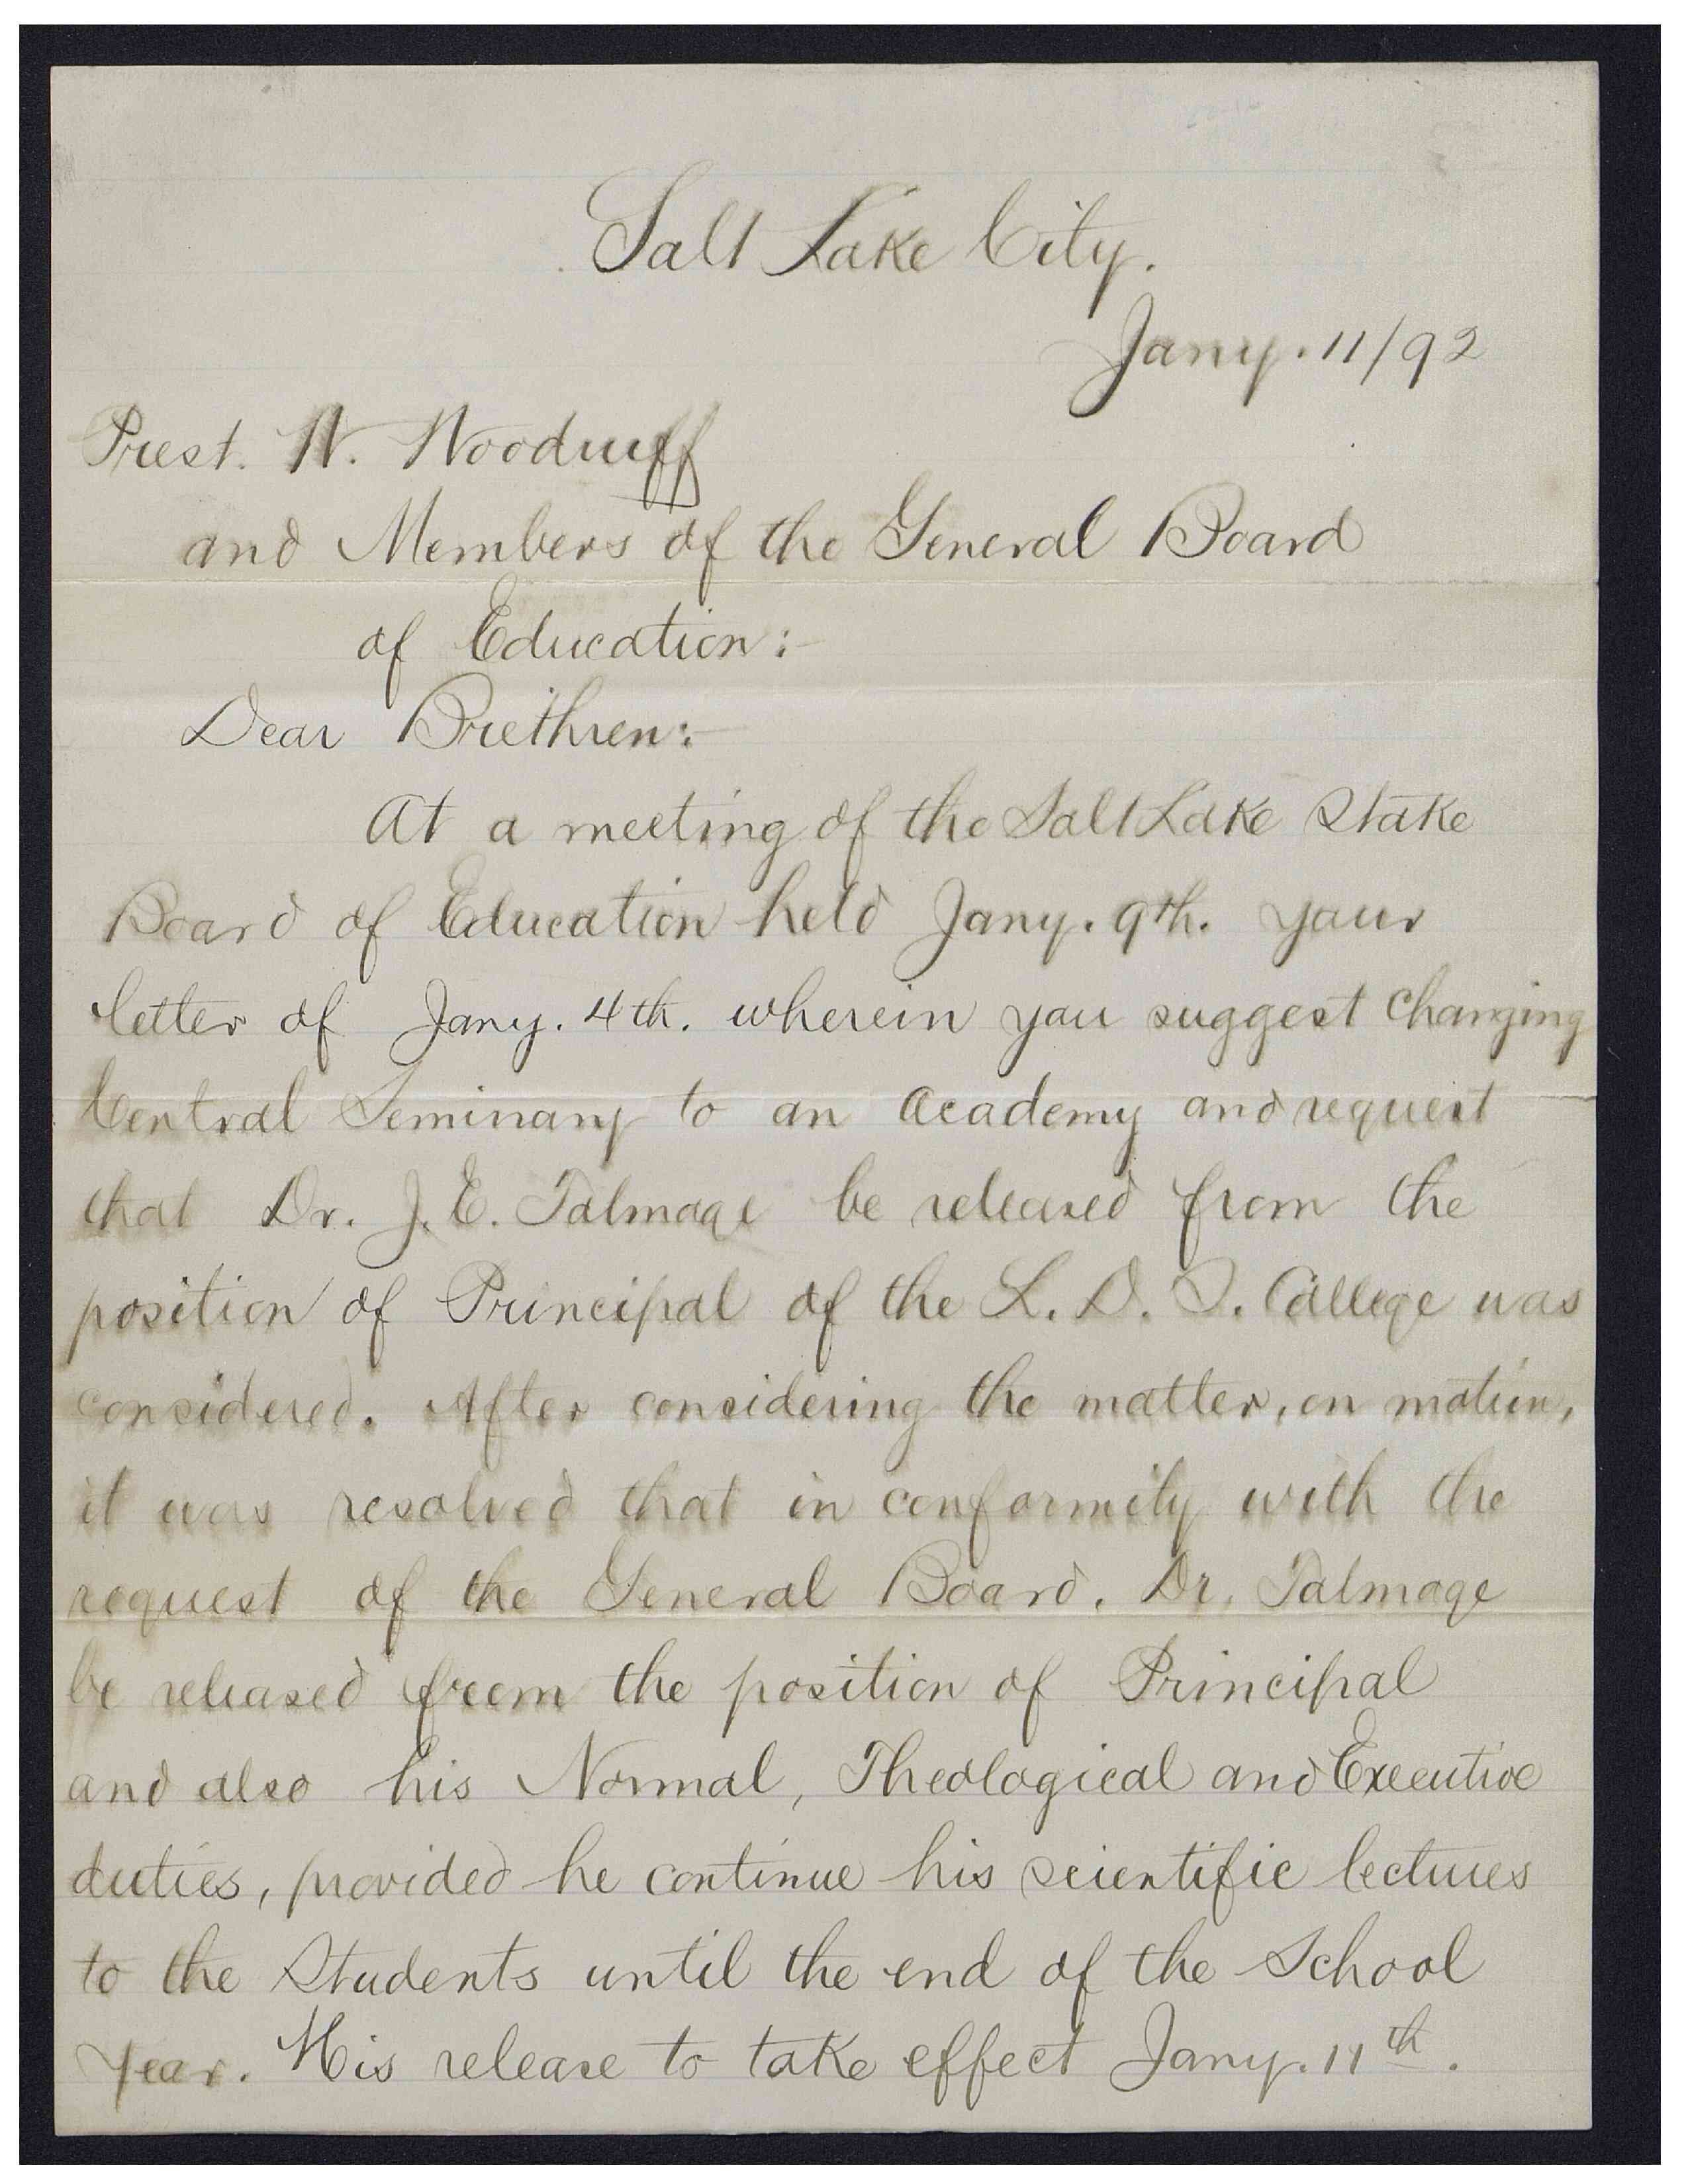 Salt Lake City.
Jany. 11/92
Prest. W. Woodruff
and Members of the General Board
of Education:-
Dear Brethren:-
At a meeting of the Salt Lake Stake
Board of Education held Jany. 9th. your
letter of Jany. 4th. wherein you suggest changing
Central Seminary to an Academy and request
that Dr. J. E. Talmage be released from the
position of Principal of the L. D. S. College was
considered. After considering the matter, on motion,
it was resolved that in conformity with the
request of the General Board, Dr. Talmage
be released from the position of Principal
and also his Normal, Theological and Executive
duties, provided he continue his scientific lectures
to the Students until the end of the School
Year. His release to take effect Jany. 11th.